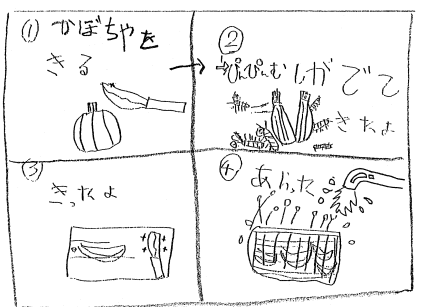 ① かぼちゃを
きる
② →ぴんぴんむしがでて
きたよ
③
きったよ
④ あらった